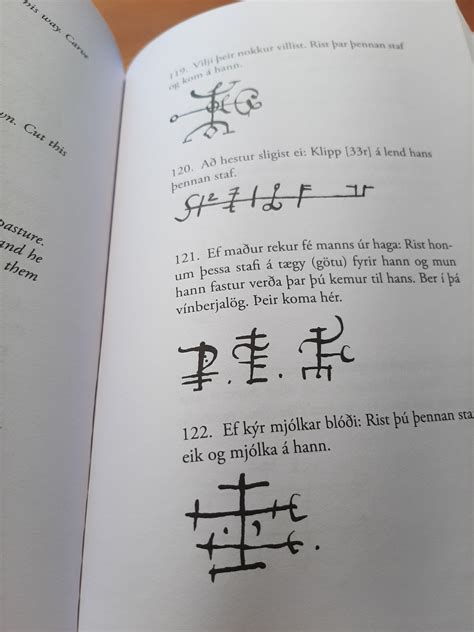 his way. Carve
n. Cut this
pasture.
and he
them
119. Vilji þeir nokkur villist. Rist þar þennan staf
og kom á hann.
120. Að hestur sligist ei: Klipp [33r] á lend hans
þennan staf.
121. Ef maður rekur fé manns úr haga: Rist hon-
um þessa stafi á tægy (götu) fyrir hann og mun
hann fastur verða þar þú kemur til hans. Ber í þá
vínberjalög. Þeir koma hér.
122. Ef kýr mjólkar blóði: Rist þú þennan sta
eik og mjólka á hann.